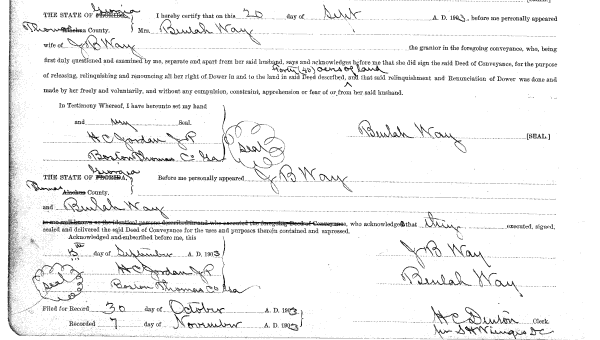 Georgia
THE STATE OF FLORIDA, I hereby certify that on this 20 day of Sept A. D. 1903, before me personally appeared
Thomas Alachua County. Mrs. Beulah Way
wife of J B Way the grantor in the foregoing conveyance, who, being
first duly questioned and examined by me, separate and apart from her said husband, says and acknowledges before me that she did sign the said Deed of Conveyance, for the purpose
forty (40) acers of land
of releasing, relinquishing and renouncing all her right of Dower in and to the land in said Deed described, and that said relinquishment and Renunciation of Dower was done and
made by her freely and voluntarily, and without any compulsion, constraint, apprehension or fear of or from her said husband.
In Testimony Whereof, I have hereunto set my hand
and my Seal.
H C Jordan J P
Boston Thomas Co Ga
Seal
Beulah Way [SEAL]
Georgia
THE STATE OF FLORIDA, Before me personally appeared J B Way
Thomas Alachua County.
and Beulah Way
to me well known as the identical persons described in and who executed the foregoing Deed of Conveyance, who acknowledged that they executed, signed,
sealed and delivered the said Deed of Conveyance for the uses and purposes therein contained and expressed.
Acknowledged and subscribed before me, this
day of September A. D. 1903
H C Jordan J P
Boston Thomas Co Ga
Seal
J B Way
Beulah Way
Filed for Record 30 day of October A. D. 1903
Recorded 7 day of November A. D. 1903
H C Denton Clerk.
per S H Wienges D C